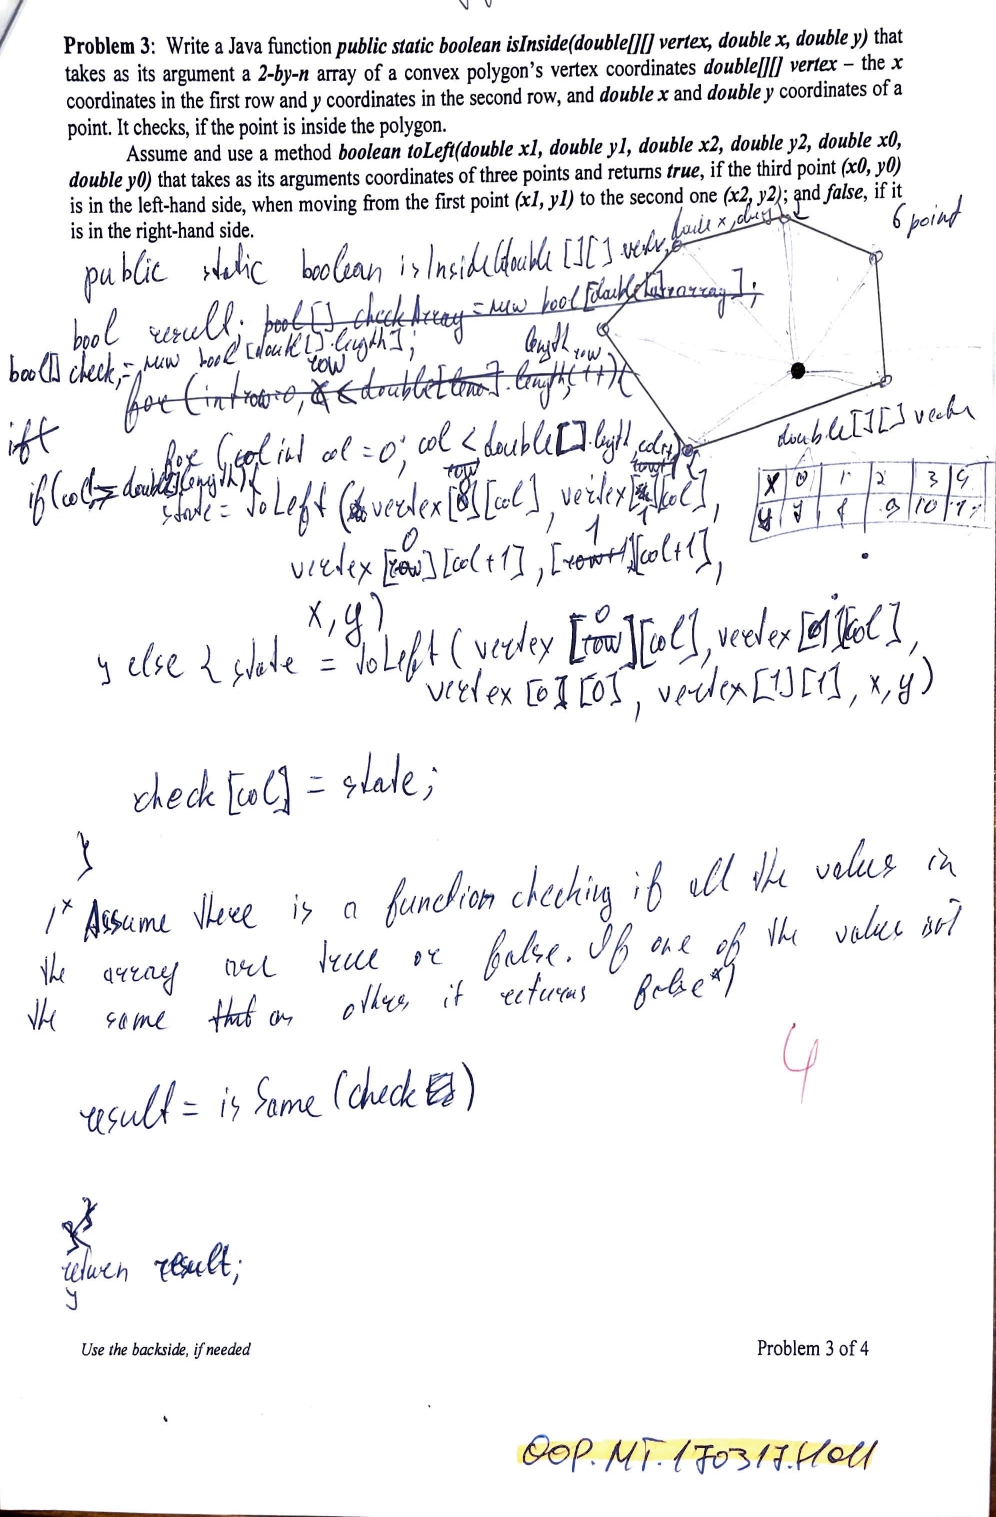 Problem 3: Write a Java function public static boolean isInside(double[][] vertex, double x, double y) that
takes as its argument a 2-by-n array of a convex polygon's vertex coordinates double[][] vertex – the x
coordinates in the first row and y coordinates in the second row, and double x and double y coordinates of a
point. It checks, if the point is inside the polygon.
Assume and use a method boolean toLeft(double x1, double y1, double x2, double y2, double x0,
double y0) that takes as its arguments coordinates of three points and returns true, if the third point (x0, y0)
is in the left-hand side, when moving from the first point (x1, y1) to the second one (x2, y2); and false, if it
is in the right-hand side.
6 point
public static boolean isInside(double [][]
bool result; bool[] checkArray = new bool[double
bool[] check = new bool [double[].length];
for (int row=0, length
for (int col = 0; col < double[].
double[][]
if(col double[].length){
state = toLeft (vertex[0][col], vertex[1][col],
X 0 1 2 3 4
y 7 8 9 10
vertex [0][col+1], [1][col+1],
x, y)
} else { state = toLeft ( vertex [0][col], vertex[1][col],
vertex [0][0], vertex[1][1], x, y)
check [col] = state;
}
/* Assume there is a function checking if all the values in
the array are true or false. If one of the values not
the same as others it returns false*/
4
result = is Same (check)
return result;
}
Use the backside, if needed
Problem 3 of 4
OOP.MT.170317.H011